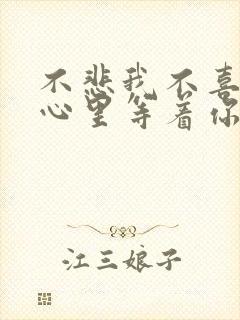 不悲我不喜
心里等着你
江三娘子